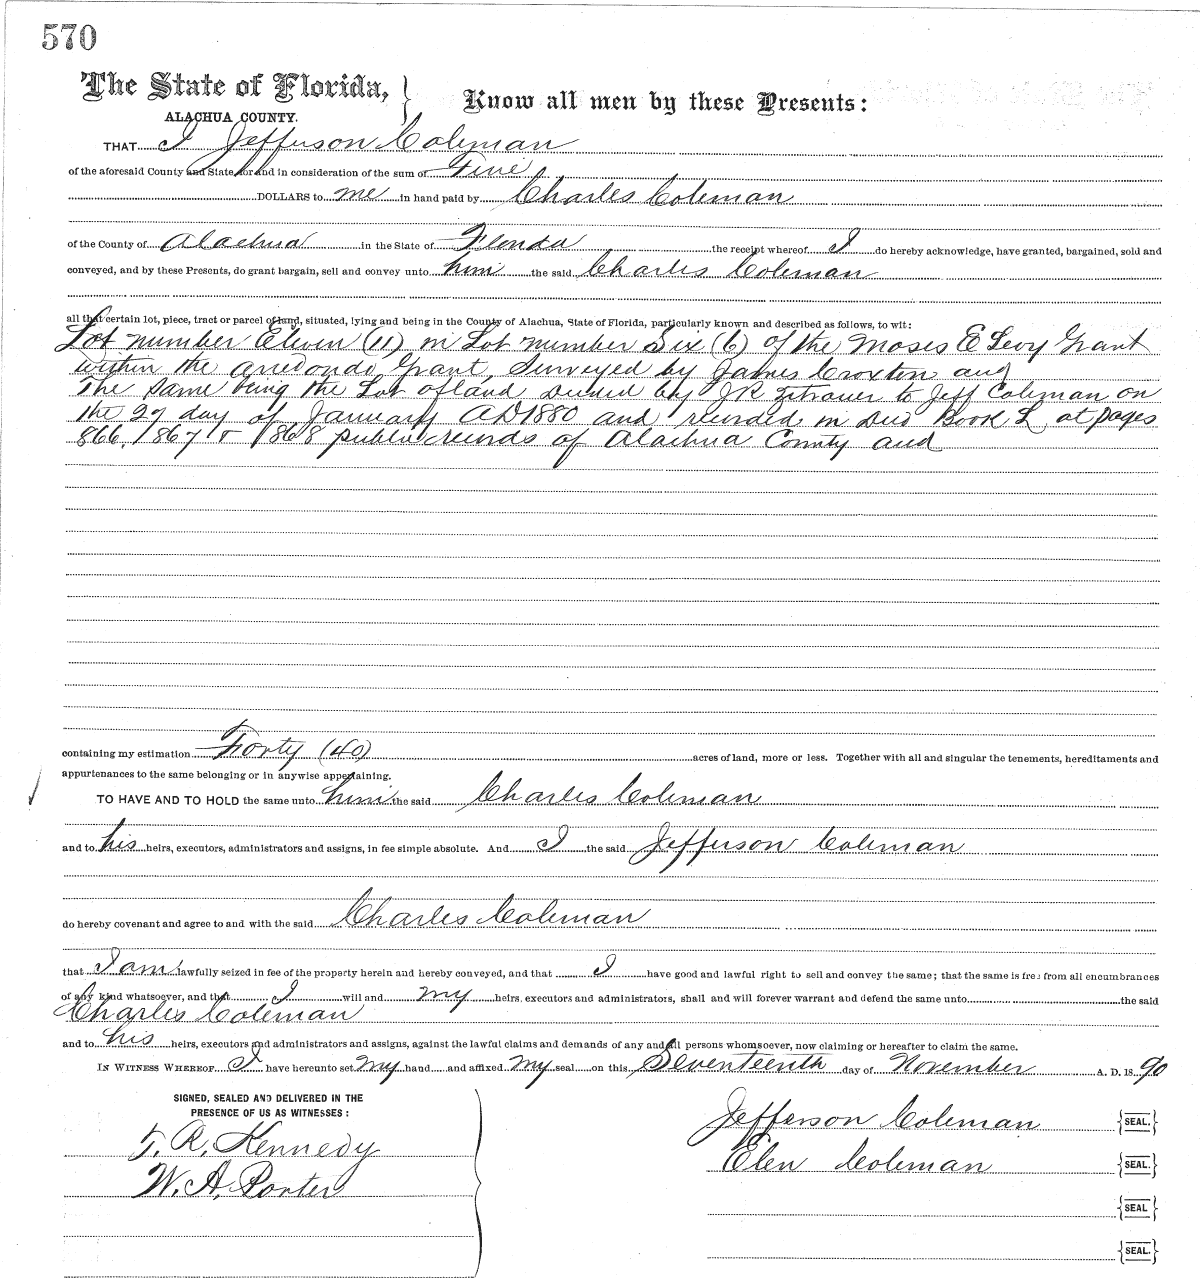 570
The State of Florida,
ALACHUA COUNTY.
Know all men by these Presents:
THAT I Jefferson Coleman
of the aforesaid County and State, for and in consideration of the sum of Five
DOLLARS to me in hand paid by Charles Coleman
of the County of Alachua in the State of Florida the receipt whereof I do hereby acknowledge, have granted, bargained, sold and
conveyed, and by these Presents, do grant bargain, sell and convey unto him the said Charles Coleman
all that certain lot, piece, tract or parcel of land, situated, lying and being in the County of Alachua, State of Florida, particularly known and described as follows, to wit:
Lot number Eleven (11) in Lot number Six (6) of the Moses E Levy Grant
within the Arredondo Grant, Surveyed by James Croxton and
The same being the Lot of land Deeded by J R Zetrouer to Jeff Coleman on
the 27 day of January AD 1880 and recorded in Deed Book L at pages
866, 867 & 868 public records of Alachua County and
containing my estimation Forty (40) acres of land, more or less. Together with all and singular the tenements, hereditaments and
appurtenances to the same belonging or in anywise appertaining.
TO HAVE AND TO HOLD the same unto him the said Charles Coleman
and to his heirs, executors, administrators and assigns, in fee simple absolute. And I the said Jefferson Coleman
do hereby covenant and agree to and with the said Charles Coleman
that I am lawfully seized in fee of the property herein and hereby conveyed, and that I have good and lawful right to sell and convey the same; that the same is free from all encumbrances
of any kind whatsoever, and that I will and my heirs, executors and administrators, shall and will forever warrant and defend the same unto the said
Charles Coleman
and to his heirs, executors and administrators and assigns, against the lawful claims and demands of any and all persons whomsoever, now claiming or hereafter to claim the same.
IN WITNESS WHEREOF I have hereunto set my hand and affixed my seal on this Seventeenth day of November A. D. 18 90
SIGNED, SEALED AND DELIVERED IN THE
PRESENCE OF US AS WITNESSES:
Jefferson Coleman {SEAL.}
T. R. Kennedy
Elen Coleman {SEAL.}
W. A. Porter
{SEAL}
{SEAL.}